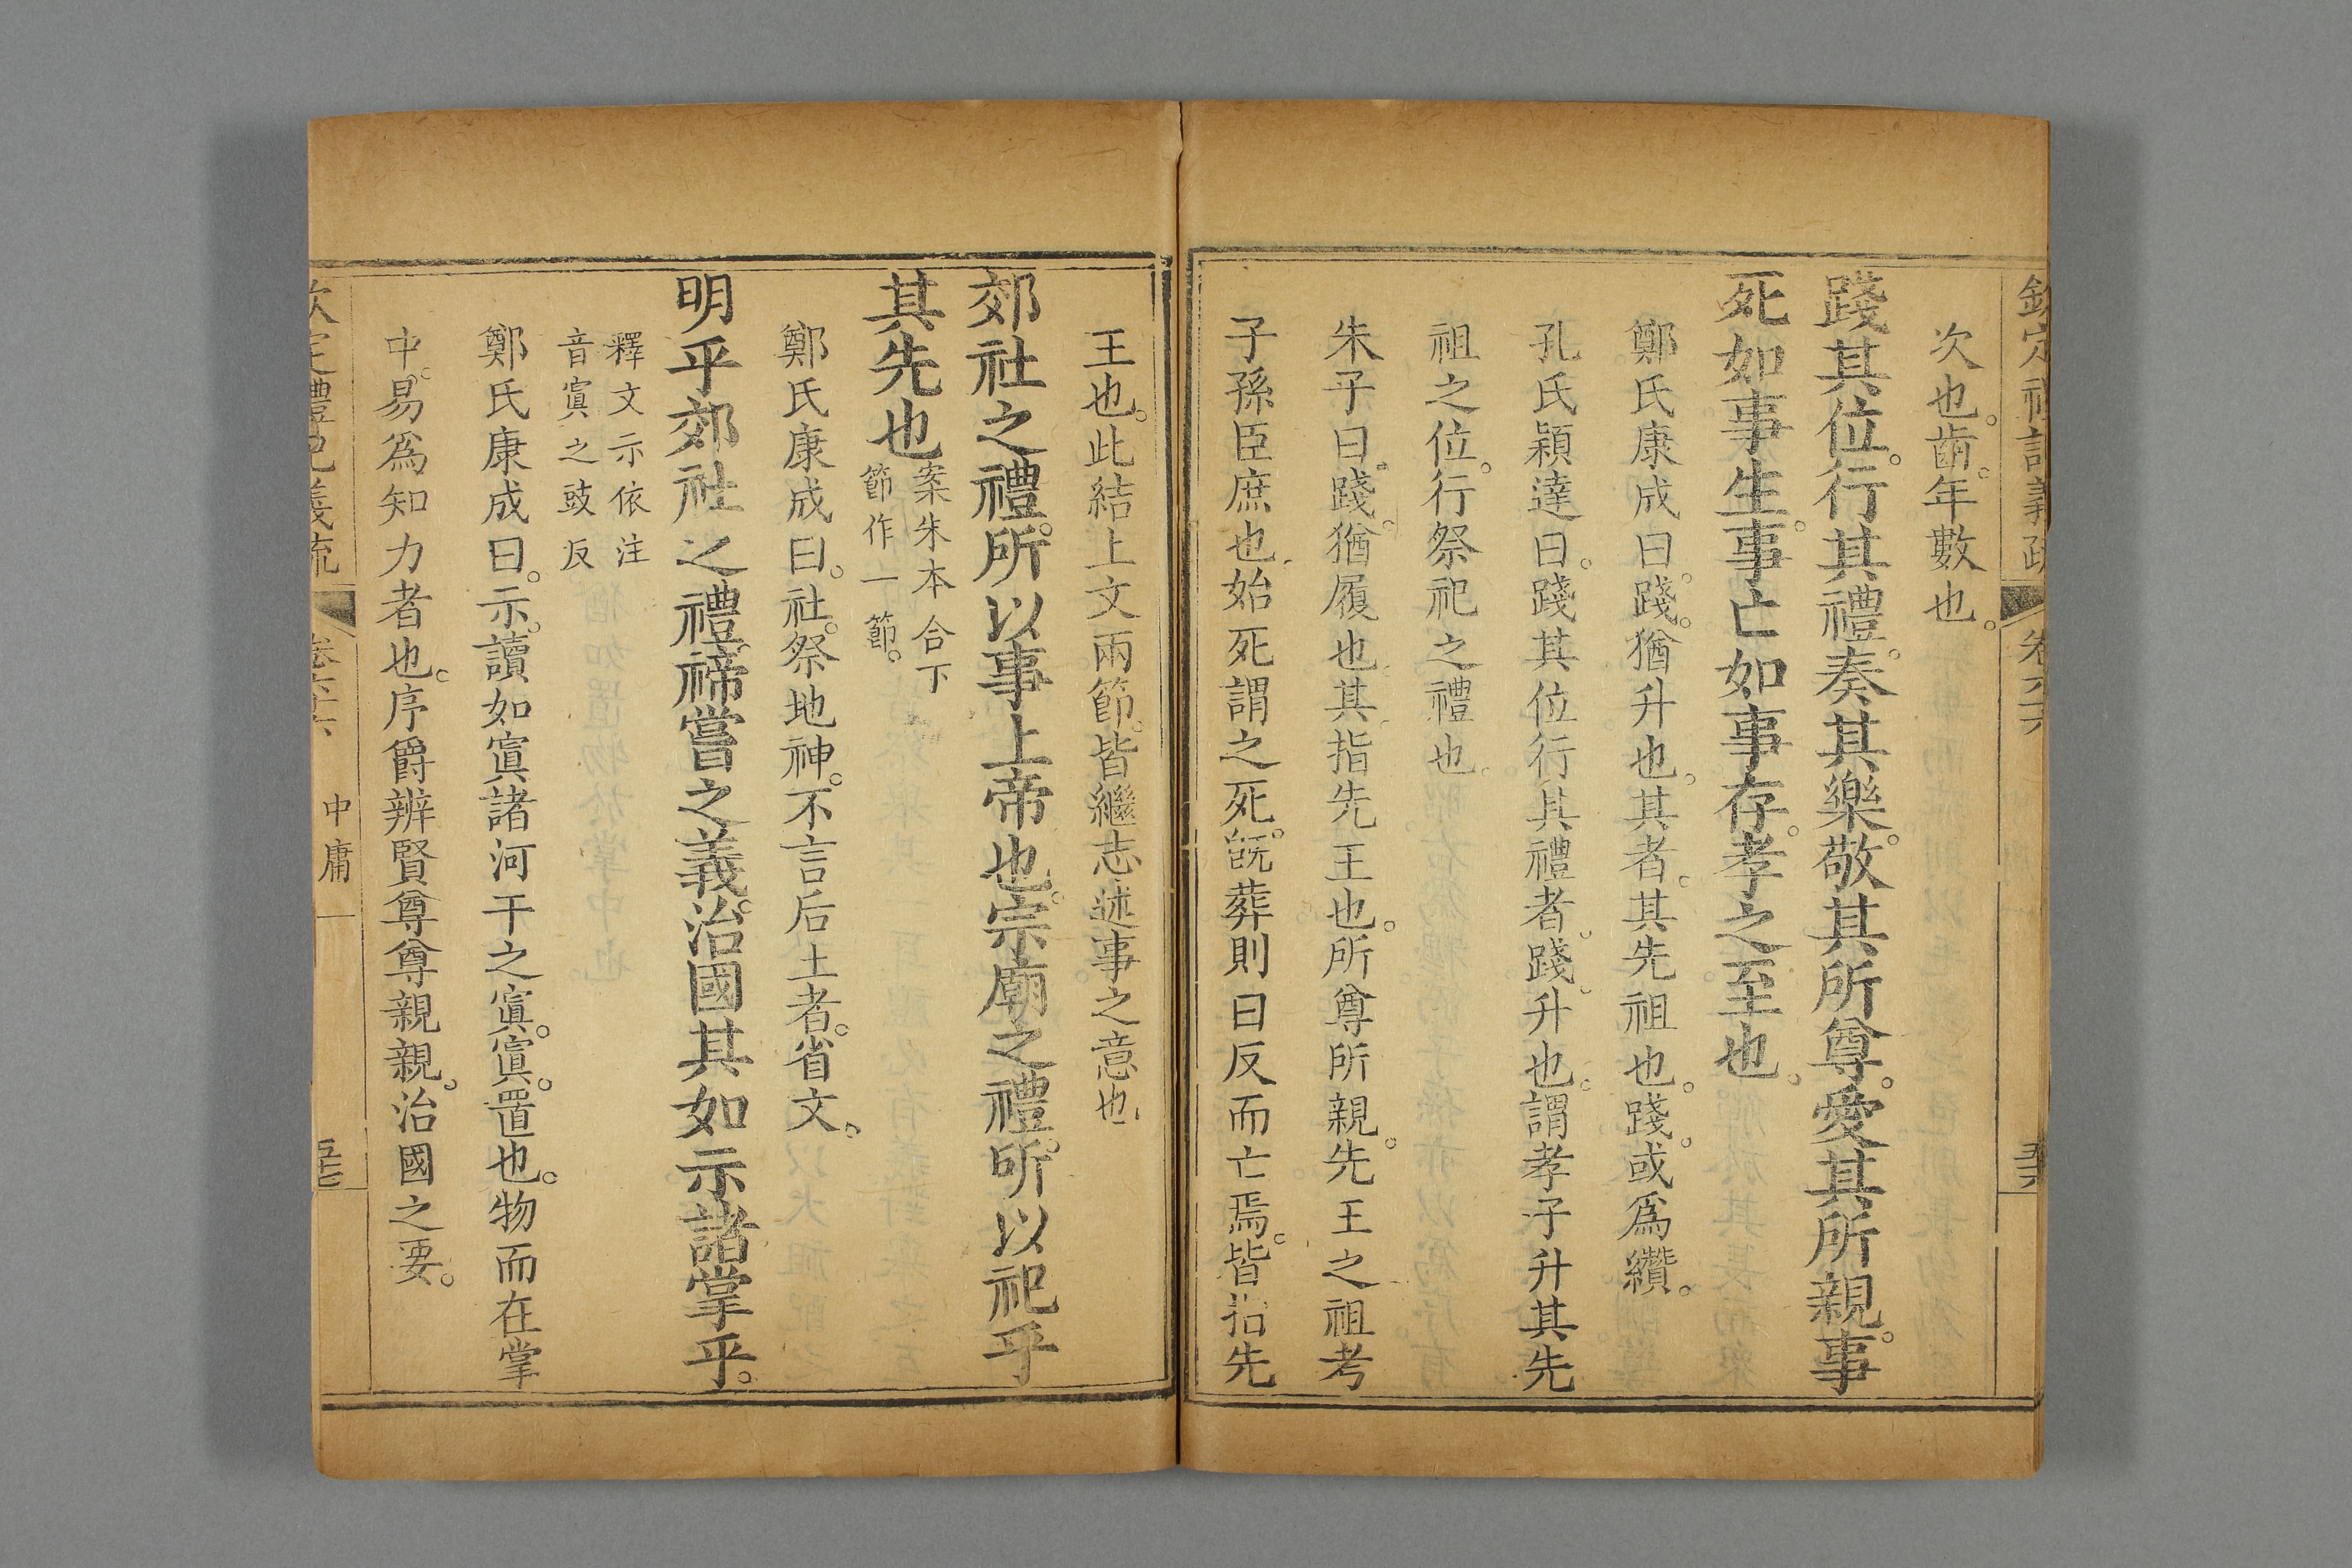 欽定禮記義疏 卷六十六 五六
次也。齒。年數也。
踐其位。行其禮。奏其樂。敬其所尊。愛其所親。事
死如事生。事亡如事存。孝之至也。
鄭氏康成曰。踐。猶升也。其者。其先祖也。踐。或爲纘。
孔氏穎達曰。踐其位行其禮者。踐。升也。謂孝子升其先
祖之位。行祭祀之禮也。
朱子曰。踐。猶履也。其。指先王也。所尊所親。先王之祖考
子孫臣庶也。始死謂之死。旣葬則曰反而亡焉。皆指先
王也。此結上文兩節。皆繼志述事之意也。
郊社之禮。所以事上帝也。宗廟之禮。所以祀乎
其先也
案朱本合下
節作一節。
鄭氏康成曰。社。祭地神。不言后土者。省文。
明乎郊社之禮。禘嘗之義。治國其如示諸掌乎。
釋文示依注
音寘之豉反
鄭氏康成曰。示。讀如寘諸河干之寘。寘。置也。物而在掌
中。易爲知力者也。序爵辨賢尊尊親親。治國之要。
欽定禮記義疏 卷六十六 中庸 五七